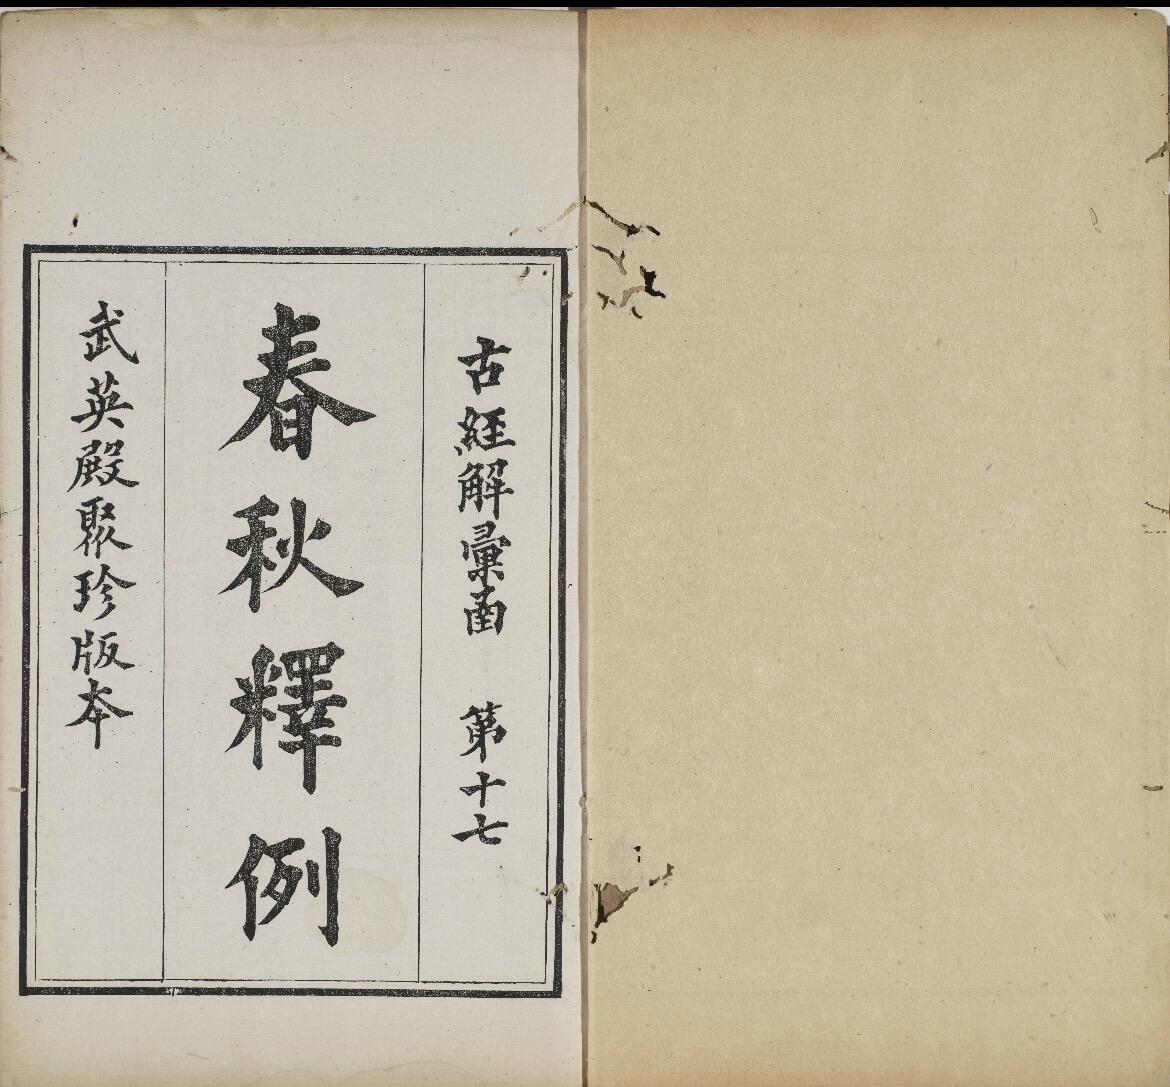 古經解彙函　第十七
春秋釋例
武英殿聚珍版本